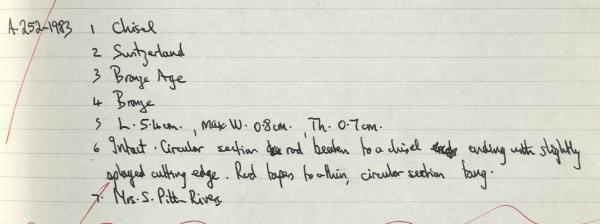 A.252-1983 1 Chisel
2 Switzerland
3 Bronze Age
4 Bronze
5 L. 5.4cm., max W. 0.8cm. Th. 0.7cm.
6 Intact. Circular section rod beaten to a chisel ending with slightly
splayed cutting edge. Rod tapes to a thin, circular section tang.
7. Mrs. S. Pitt-Rivers